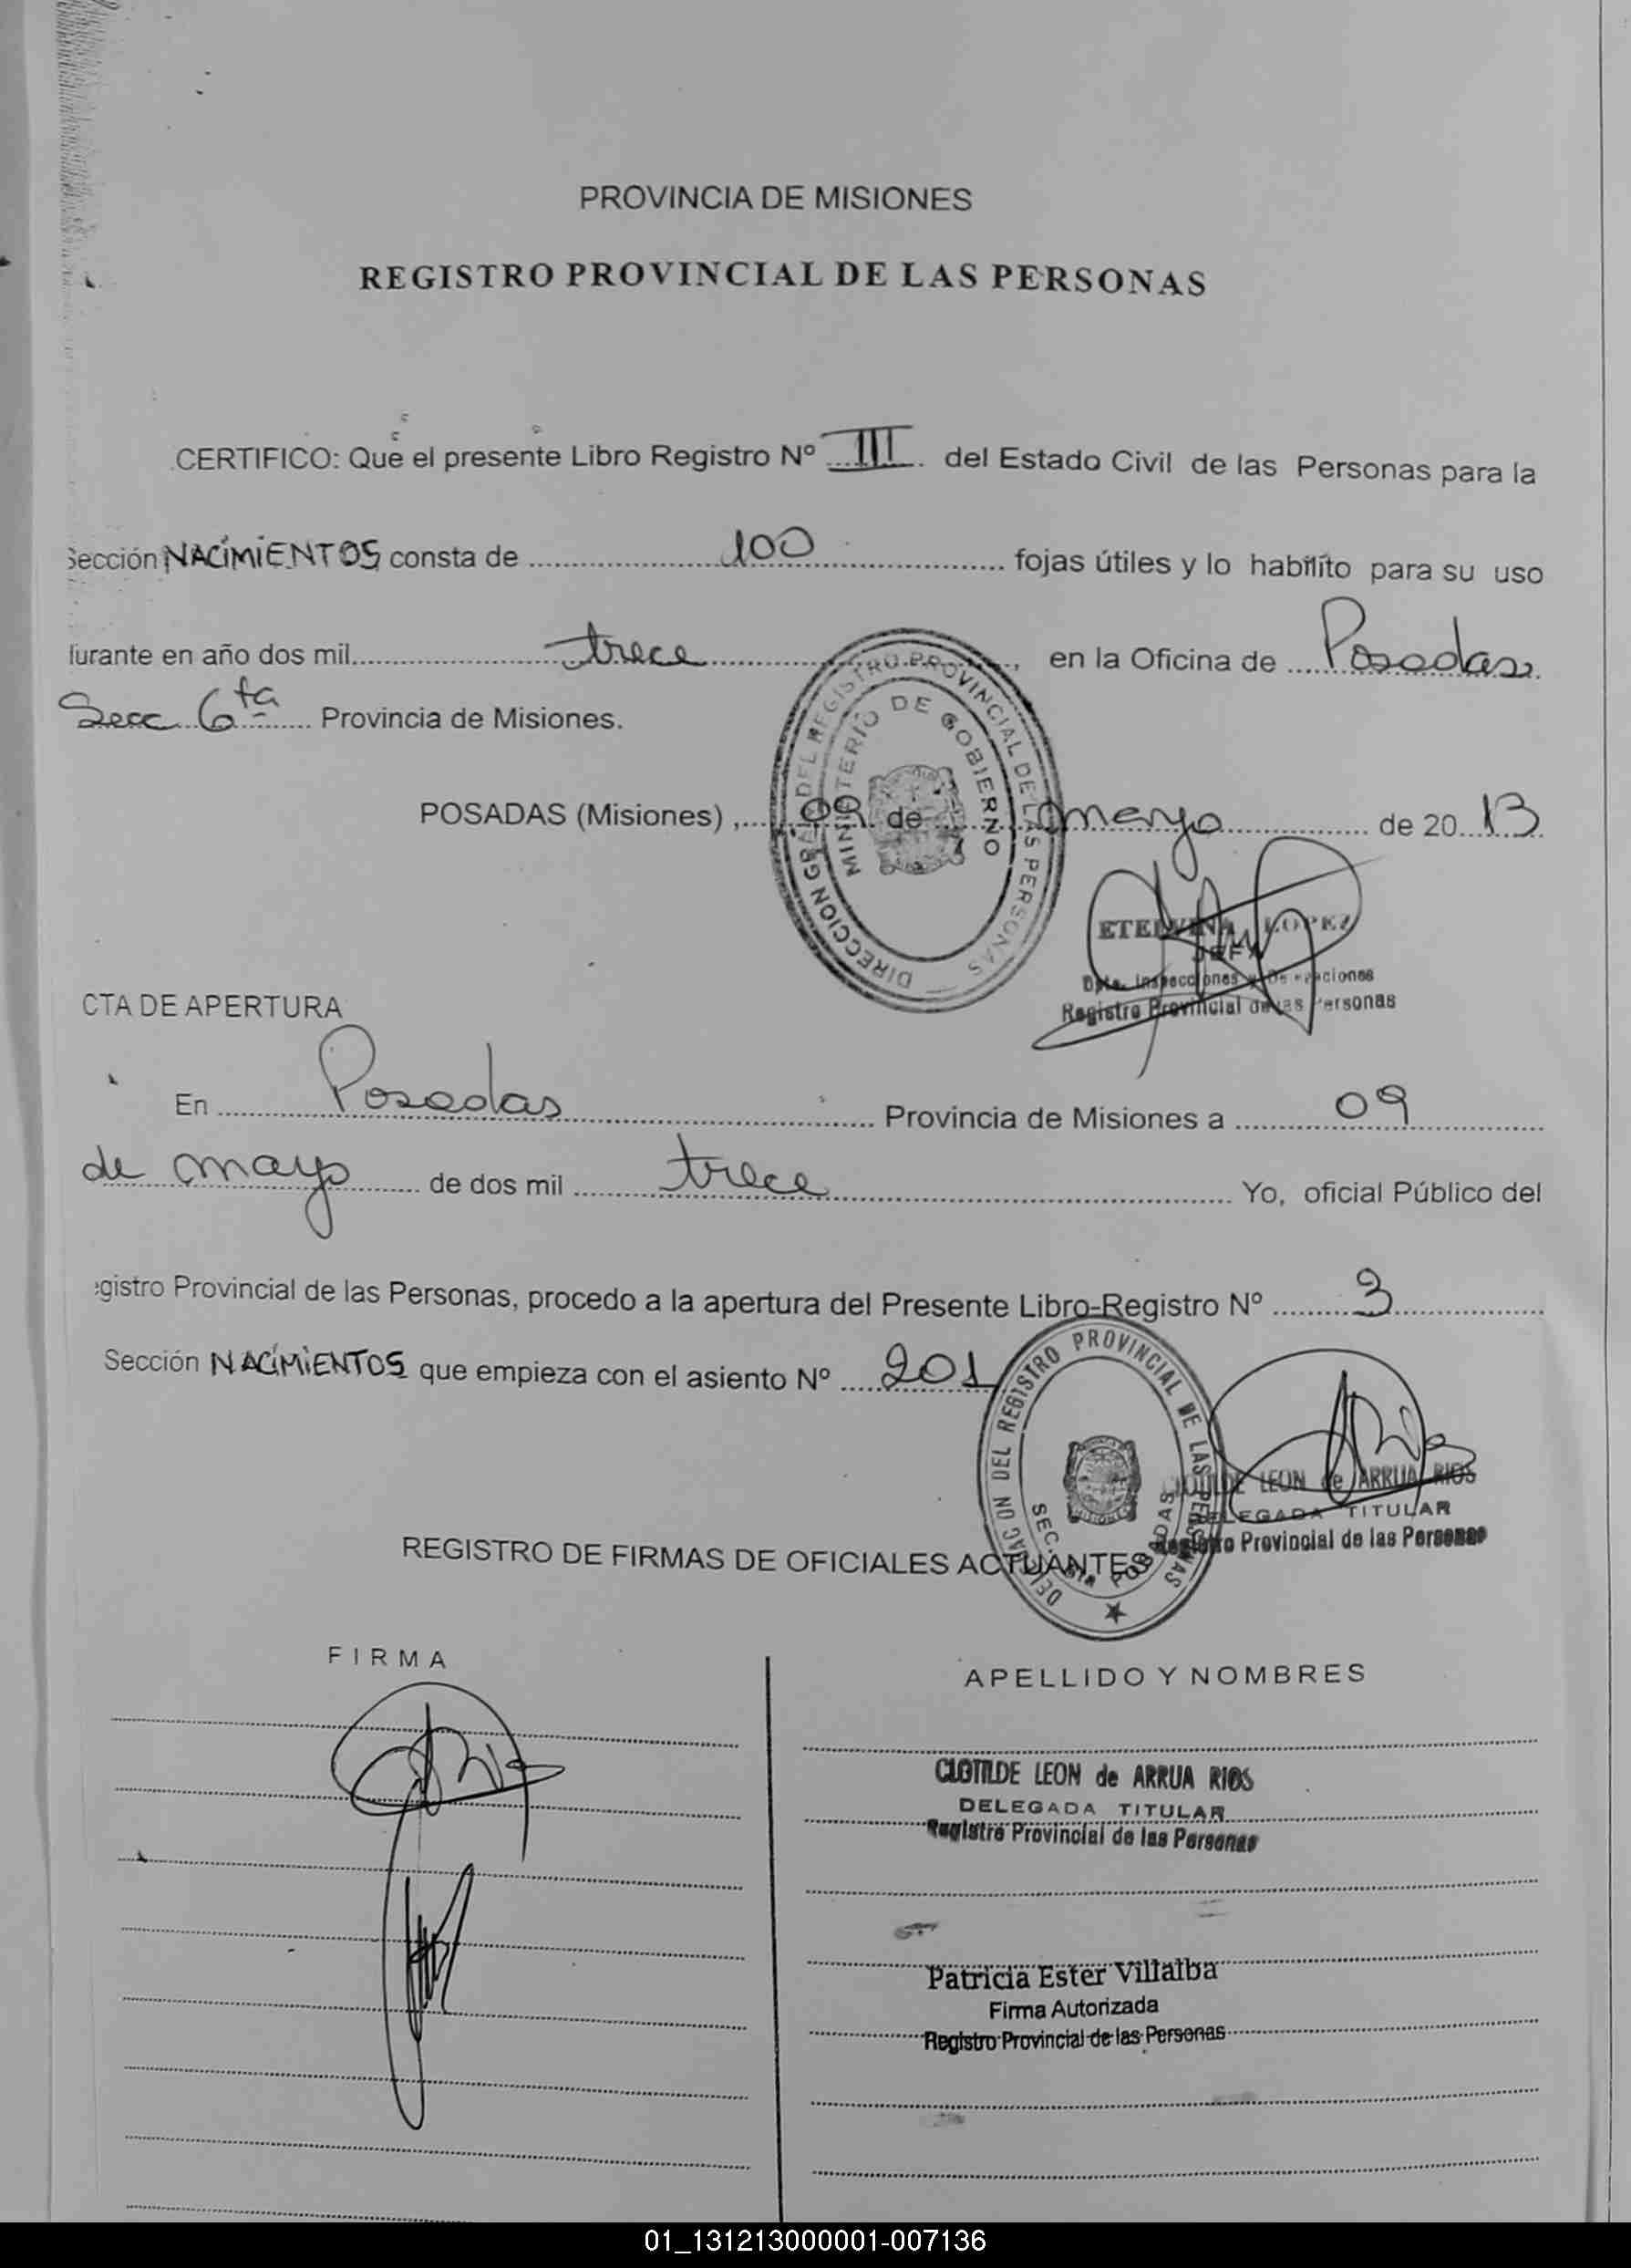 PROVINCIA DE MISIONES
REGISTRO PROVINCIAL DE LAS PERSONAS
CERTIFICO: Que el presente Libro Registro Nº III del Estado Civil de las Personas para la
Sección NACIMIENTOS consta de 100 fojas útiles y lo habilito para su uso
durante en año dos mil trece en la Oficina de Posadas
Secc 6ta Provincia de Misiones.
DIRECCION GRAL DEL REGISTRO PROVINCIAL DE LAS PERSONAS
MINISTERIO DE GOBIERNO
POSADAS (Misiones), 09 de mayo de 20 13
ETELVINA LOPEZ
JEFA
Dpto. Inspecciones y
Registro Provincial de las Personas
CTA DE APERTURA
En Posadas Provincia de Misiones a 09
de mayo de dos mil trece Yo, oficial Público del
egistro Provincial de las Personas, procedo a la apertura del Presente Libro-Registro Nº 3
Sección NACIMIENTOS que empieza con el asiento Nº 201
DELEGACION DEL REGISTRO PROVINCIAL DE LAS PERSONAS
SEC. 6ta POSADAS
CLOTILDE LEON de ARRUA RIOS
DELEGADA TITULAR
Registro Provincial de las Personas
REGISTRO DE FIRMAS DE OFICIALES ACTUANTES
FIRMA
APELLIDO Y NOMBRES
CLOTILDE LEON de ARRUA RIOS
DELEGADA TITULAR
Registro Provincial de las Personas
Patricia Ester Villalba
Firma Autorizada
Registro Provincial de las Personas
01_131213000001-007136